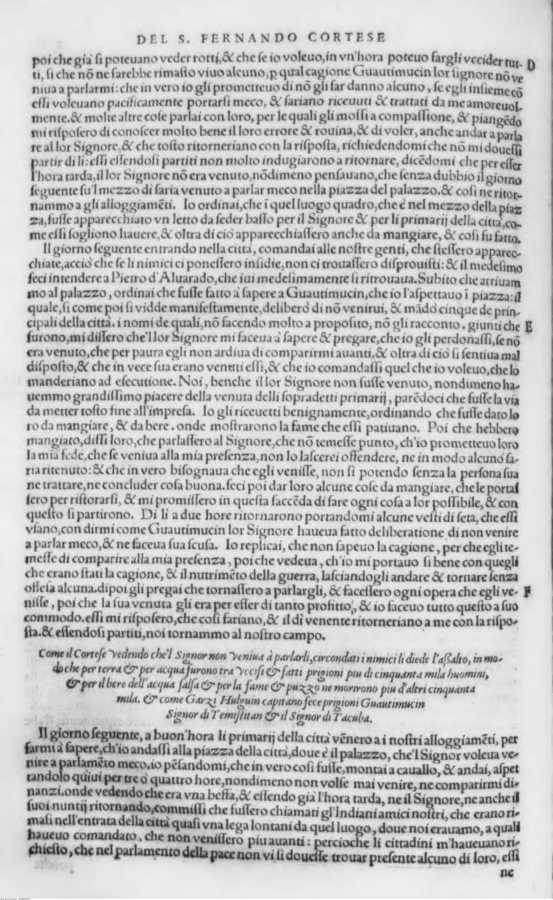 DEL S. FERNANDO CORTESE
poi che gia si poteuano veder rotti, & che se io voleuo, in vn'hora poteuo fargli vccider tut- D
ti, si che nō ne sarebbe rimasto viuo alcuno, p qual cagione Guautimucin lor signore nō ve
niua a parlarmi: che in vero io gli prometteuo di nō gli far danno alcuno, se egli insieme cō
essi voleuano pacificamente portarsi meco, & sariano riceuuti & trattati da me amoreuol-
mente. & molte altre cose parlai con loro, per le quali gli mossi a compassione, & piangēdo
mi risposero di conoscer molto bene il loro errore & rouina, & di voler, anche andar a parla
re al lor Signore, & che tosto ritorneriano con la risposta, richiedendomi che nō mi douessi
partir di li: essi essendosi partiti non molto indugiarono a ritornare, dicēdomi che per esser
l'hora tarda, il lor Signore nō era venuto, nōdimeno pensauano, che senza dubbio il giorno
seguente su'l mezzo di saria venuto a parlar meco nella piazza del palazzo. & cosi ne ritor-
nammo a gli alloggiamēti. Io ordinai, che i quel luogo quadro, che è nel mezzo della piaz
za, fusse apparecchiato vn letto da seder basso per il Signore & per li primarij della città, co-
me essi sogliono hauere, & oltra di cio apparecchiassero anche da mangiare, & cosi fu fatto.
Il giorno seguente entrando nella città, comandai alle nostre genti, che stessero apparec-
chiate, acciò che se li nimici ci ponessero insidie, non ci trouassero disprouisti: & il medesimo
feci intendere a Pietro d'Aluarado, che iui medesimamente si ritrouaua. Subito che arriuam
mo al palazzo, ordinai che fusse fatto a sapere a Guautimucin, che io l'aspettauo ī piazza: il
quale, si come poi si vidde manifestamente, deliberò di nō venirui, & mādò cinque de prin-
cipali della città. i nomi de quali, nō facendo molto a proposito, nō gli racconto. giunti che E
furono, mi dissero che'l lor Signore mi faceua à sapere & pregare, che io gli perdonassi, se nō
era venuto, che per paura egli non ardiua di comparirmi auanti, & oltra di ciò si sentiua mal
disposto, & che in vece sua erano venuti essi, & che io comandassi quel che io voleuo, che lo
manderiano ad esecutione. Noi, benche il lor Signore non fusse venuto, nondimeno ha-
uemmo grandissimo piacere della venuta delli sopradetti primarij, parēdoci che fusse la via
da metter tosto fine all'impresa. Io gli riceuetti benignamente, ordinando che fusse dato lo
ro da mangiare, & da bere. onde mostrarono la fame che essi patiuano. Poi che hebbero
mangiato, dissi loro, che parlassero al Signore, che nō temesse punto, ch'io prometteuo loro
la mia fede, che se veniua alla mia presenza, non lo lascerei offendere, ne in modo alcuno sa-
ria ritenuto: & che in vero bisognaua che egli venisse, non si potendo senza la persona sua
ne trattare, ne concluder cosa buona. feci poi dar loro alcune cose da mangiare, che le portas
sero per ristorarsi, & mi promissero in questa faccēda di fare ogni cosa a lor possibile, & con
questo si partirono. Di li a due hore ritornarono portandomi alcune vesti di seta, che essi
vsano, con dirmi come Guautimucin lor Signore haueua fatto deliberatione di non venire
a parlar meco, & ne faceua sua scusa. Io replicai, che non sapeuo la cagione, per che egli te-
messe di comparire alla mia presenza, poi che vedeua, ch'io mi portauo si bene con quegli
che erano stati la cagione, & il nutrimēto della guerra, lasciandogli andare & tornare senza
offesa alcuna. dipoi gli pregai che tornassero a parlargli, & facessero ogni opera che egli ve- F
nisse, poi che la sua venuta gli era per esser di tanto profitto, & io faceuo tutto questo a suo
commodo. essi mi risposero, che cosi fariano, & il dì venente ritorneriano a me con la rispo-
sta. & essendosi partiti, noi tornammo al nostro campo.
Come il Cortese vedendo che'l Signor non veniua à parlarli, circondati i nimici li diede l'assalto, in mo-
do che per terra & per acqua furono tra vccisi & fatti prigioni piu di cinquanta mila huomini,
& per il bere dell'acqua salsa & per la fame & puzzo ne morirono piu d'altri cinquanta
mila. & come Garzi Holguin capitano fece prigioni Guautimucin
Signor di Temistitan & il Signor di Tacuba.
Il giorno seguente, a buon'hora li primarij della città vēnero a i nostri alloggiamēti, per
farmi a sapere, ch'io andassi alla piazza della città, doue è il palazzo, che'l Signor voleua ve-
nire a parlamēto meco, io pēsandomi, che in vero cosi fusse, montai a cauallo, & andai, aspet
tandolo quiui per tre o quattro hore, nondimeno non volse mai venire, ne comparirmi di-
nanzi. onde vedendo che era vna beffa, & essendo già l'hora tarda, ne il Signore, ne anche il
suoi nuntij ritornando, commissi che fussero chiamati gl'Indiani amici nostri, che erano ri-
masi nell'entrata della città quasi vna lega lontani da quel luogo, doue noi erauamo, a quali
haueuo comandato, che non venissero piu auanti: percioche li cittadini m'haueuano ri-
chiesto, che nel parlamento della pace non vi si douesse trouar presente alcuno di loro, essi
ne